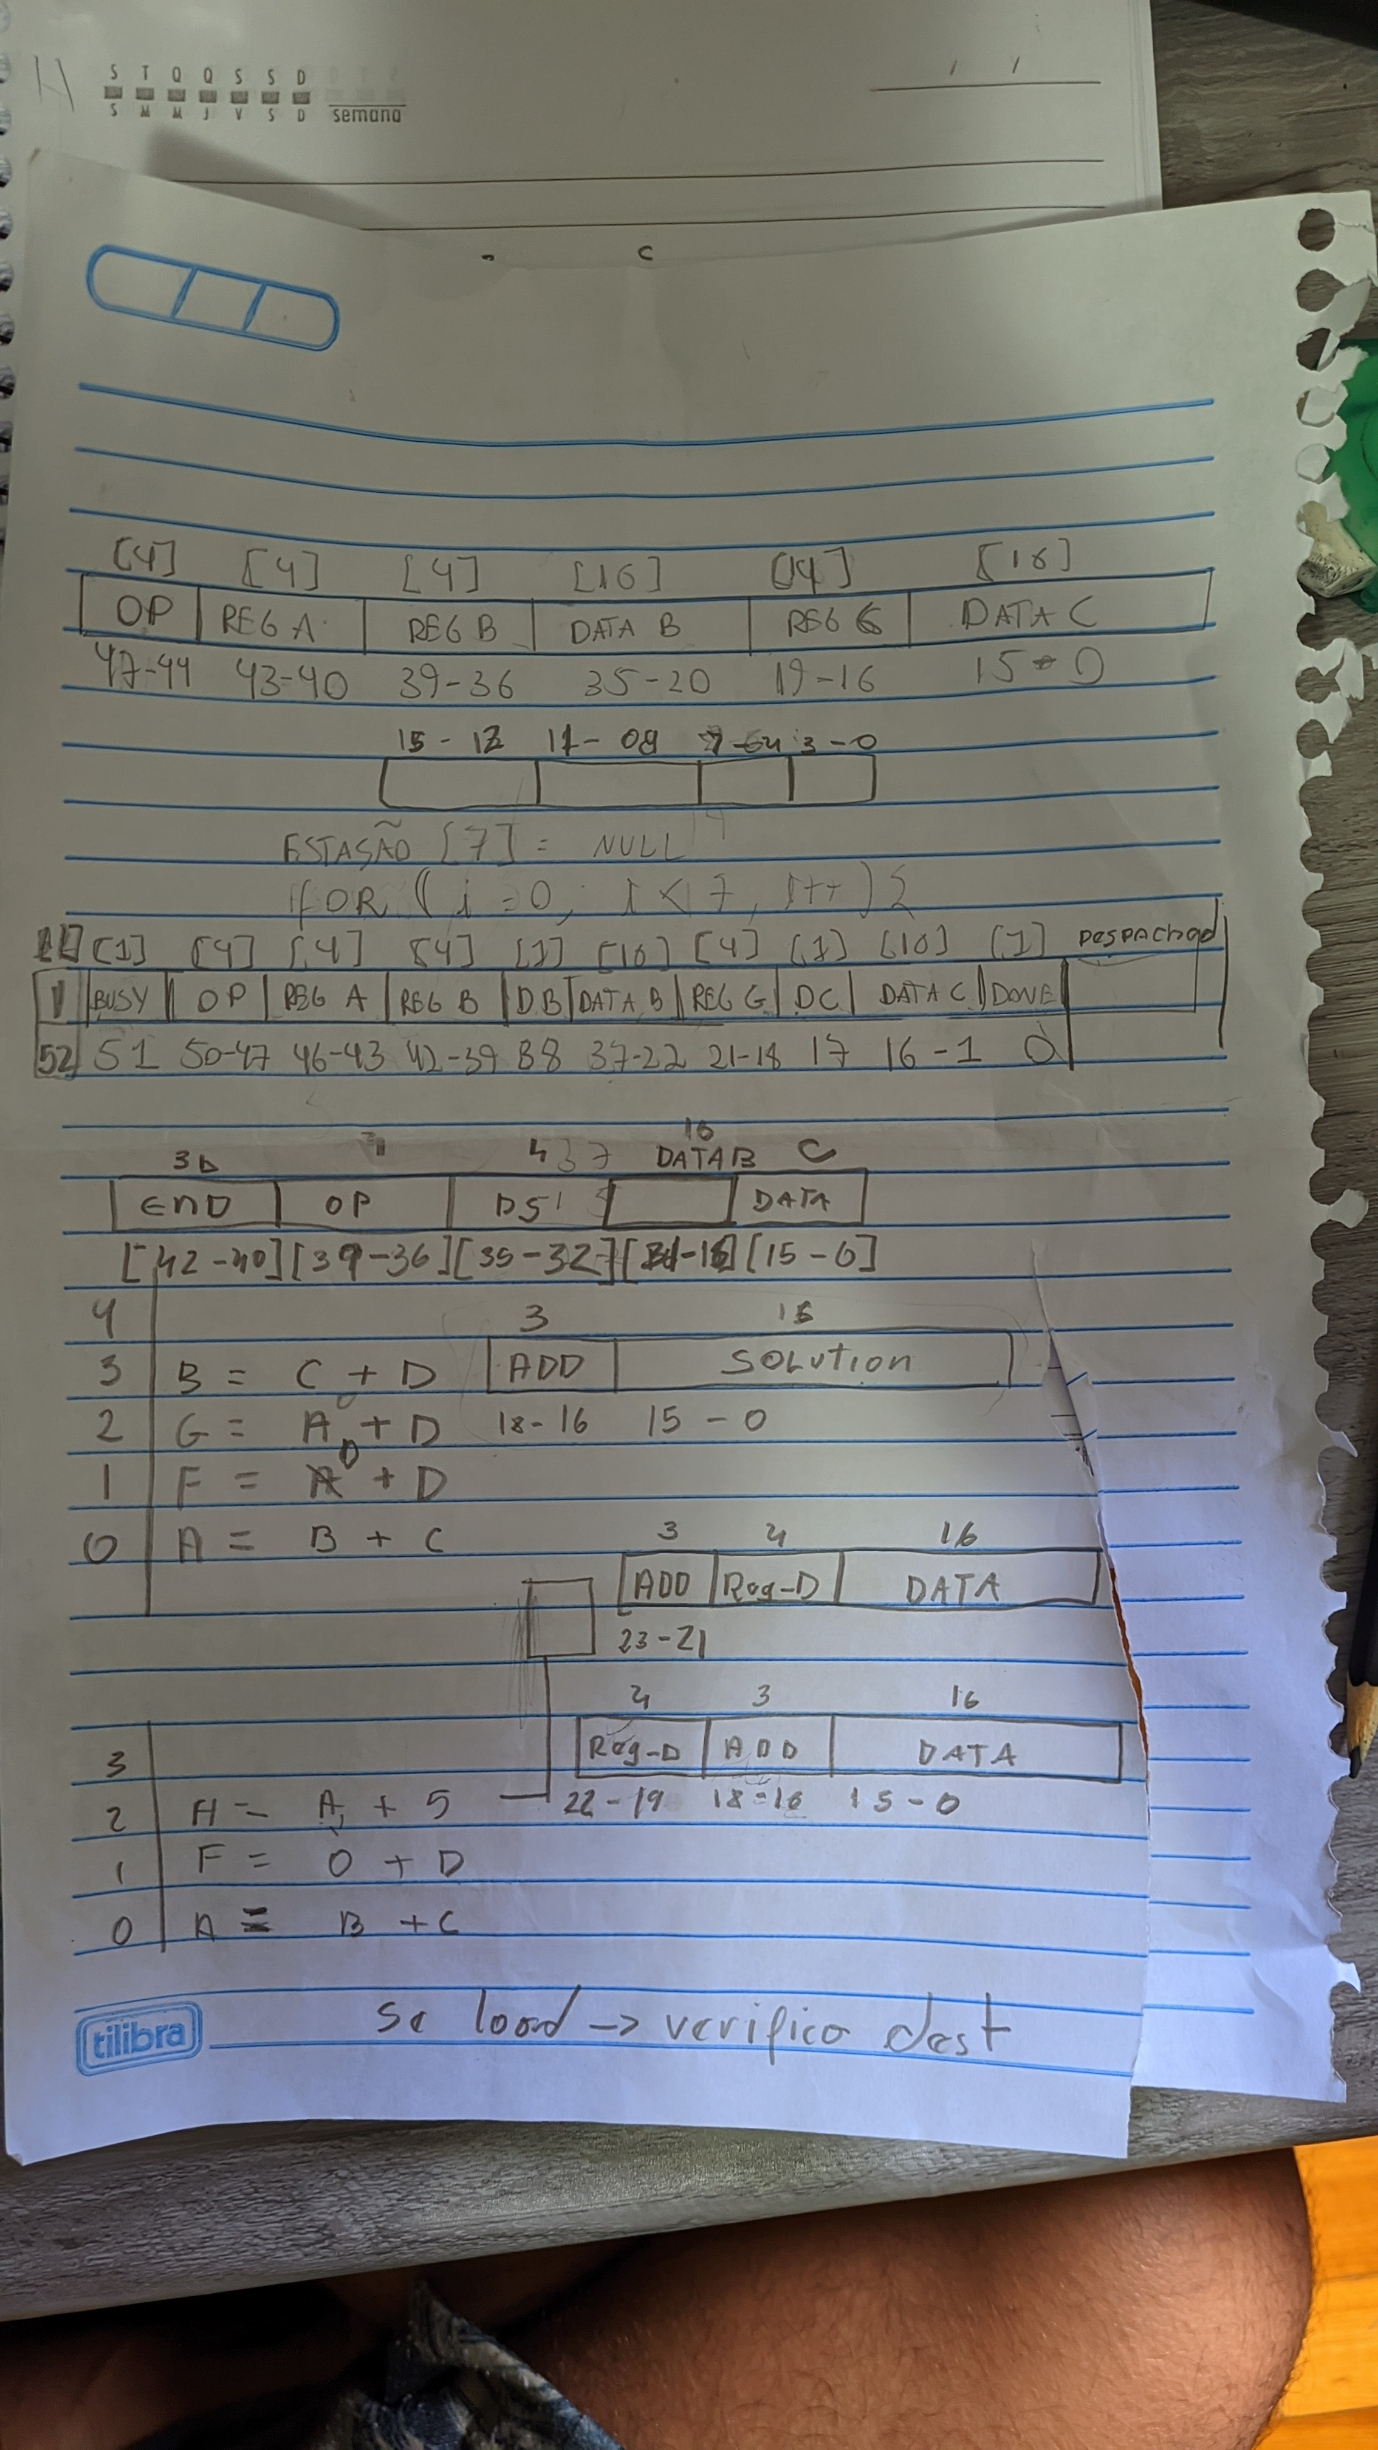 S T Q Q S S D
S M M J V S D semana
/ /
c
[4] [4] [4] [16] [4] [16]
OP REG A REG B DATA B REG C DATA C
47-44 43-40 39-36 35-20 19-16 15-0
15-12 11-08 7-04 3-0
ESTASÃO [7] = NULL
FOR (i=0; i<7, i++){
[1] [4] [4] [4] [1] [16] [4] [1] [16] [1] DESPACHADO
BUSY OP REG A REG B DB DATA B REG C DC DATA C DONE
52 51 50-47 46-43 42-39 38 37-22 21-18 17 16-1 0
3b 4 16
DATA B C
END OP DATA
[42-40][39-36][35-32] [15-0]
4 3 16
3 B = C + D ADD SOLUTION
2 G = A + D 18-16 15-0
1 F = + D
0 A = B + C 3 4 16
ADD Reg-D DATA
23-21
4 3 16
3 Reg-D ADD DATA
2 H = A + 5 22-19 18-16 15-0
1 F = 0 + D
0 A = B + C
se load -> verifico dest
tilibra